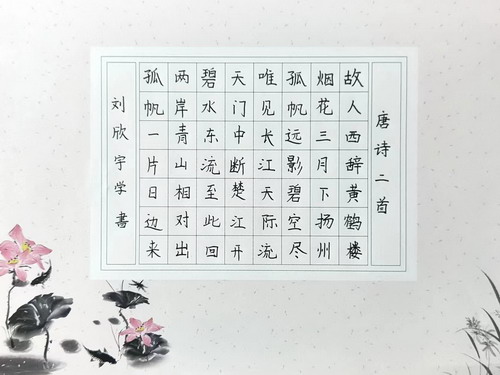 唐诗二首
故人西辞黄鹤楼
烟花三月下扬州
孤帆远影碧空尽
唯见长江天际流
天门中断楚江开
碧水东流至此回
两岸青山相对出
孤帆一片日边来
刘欣宇学书